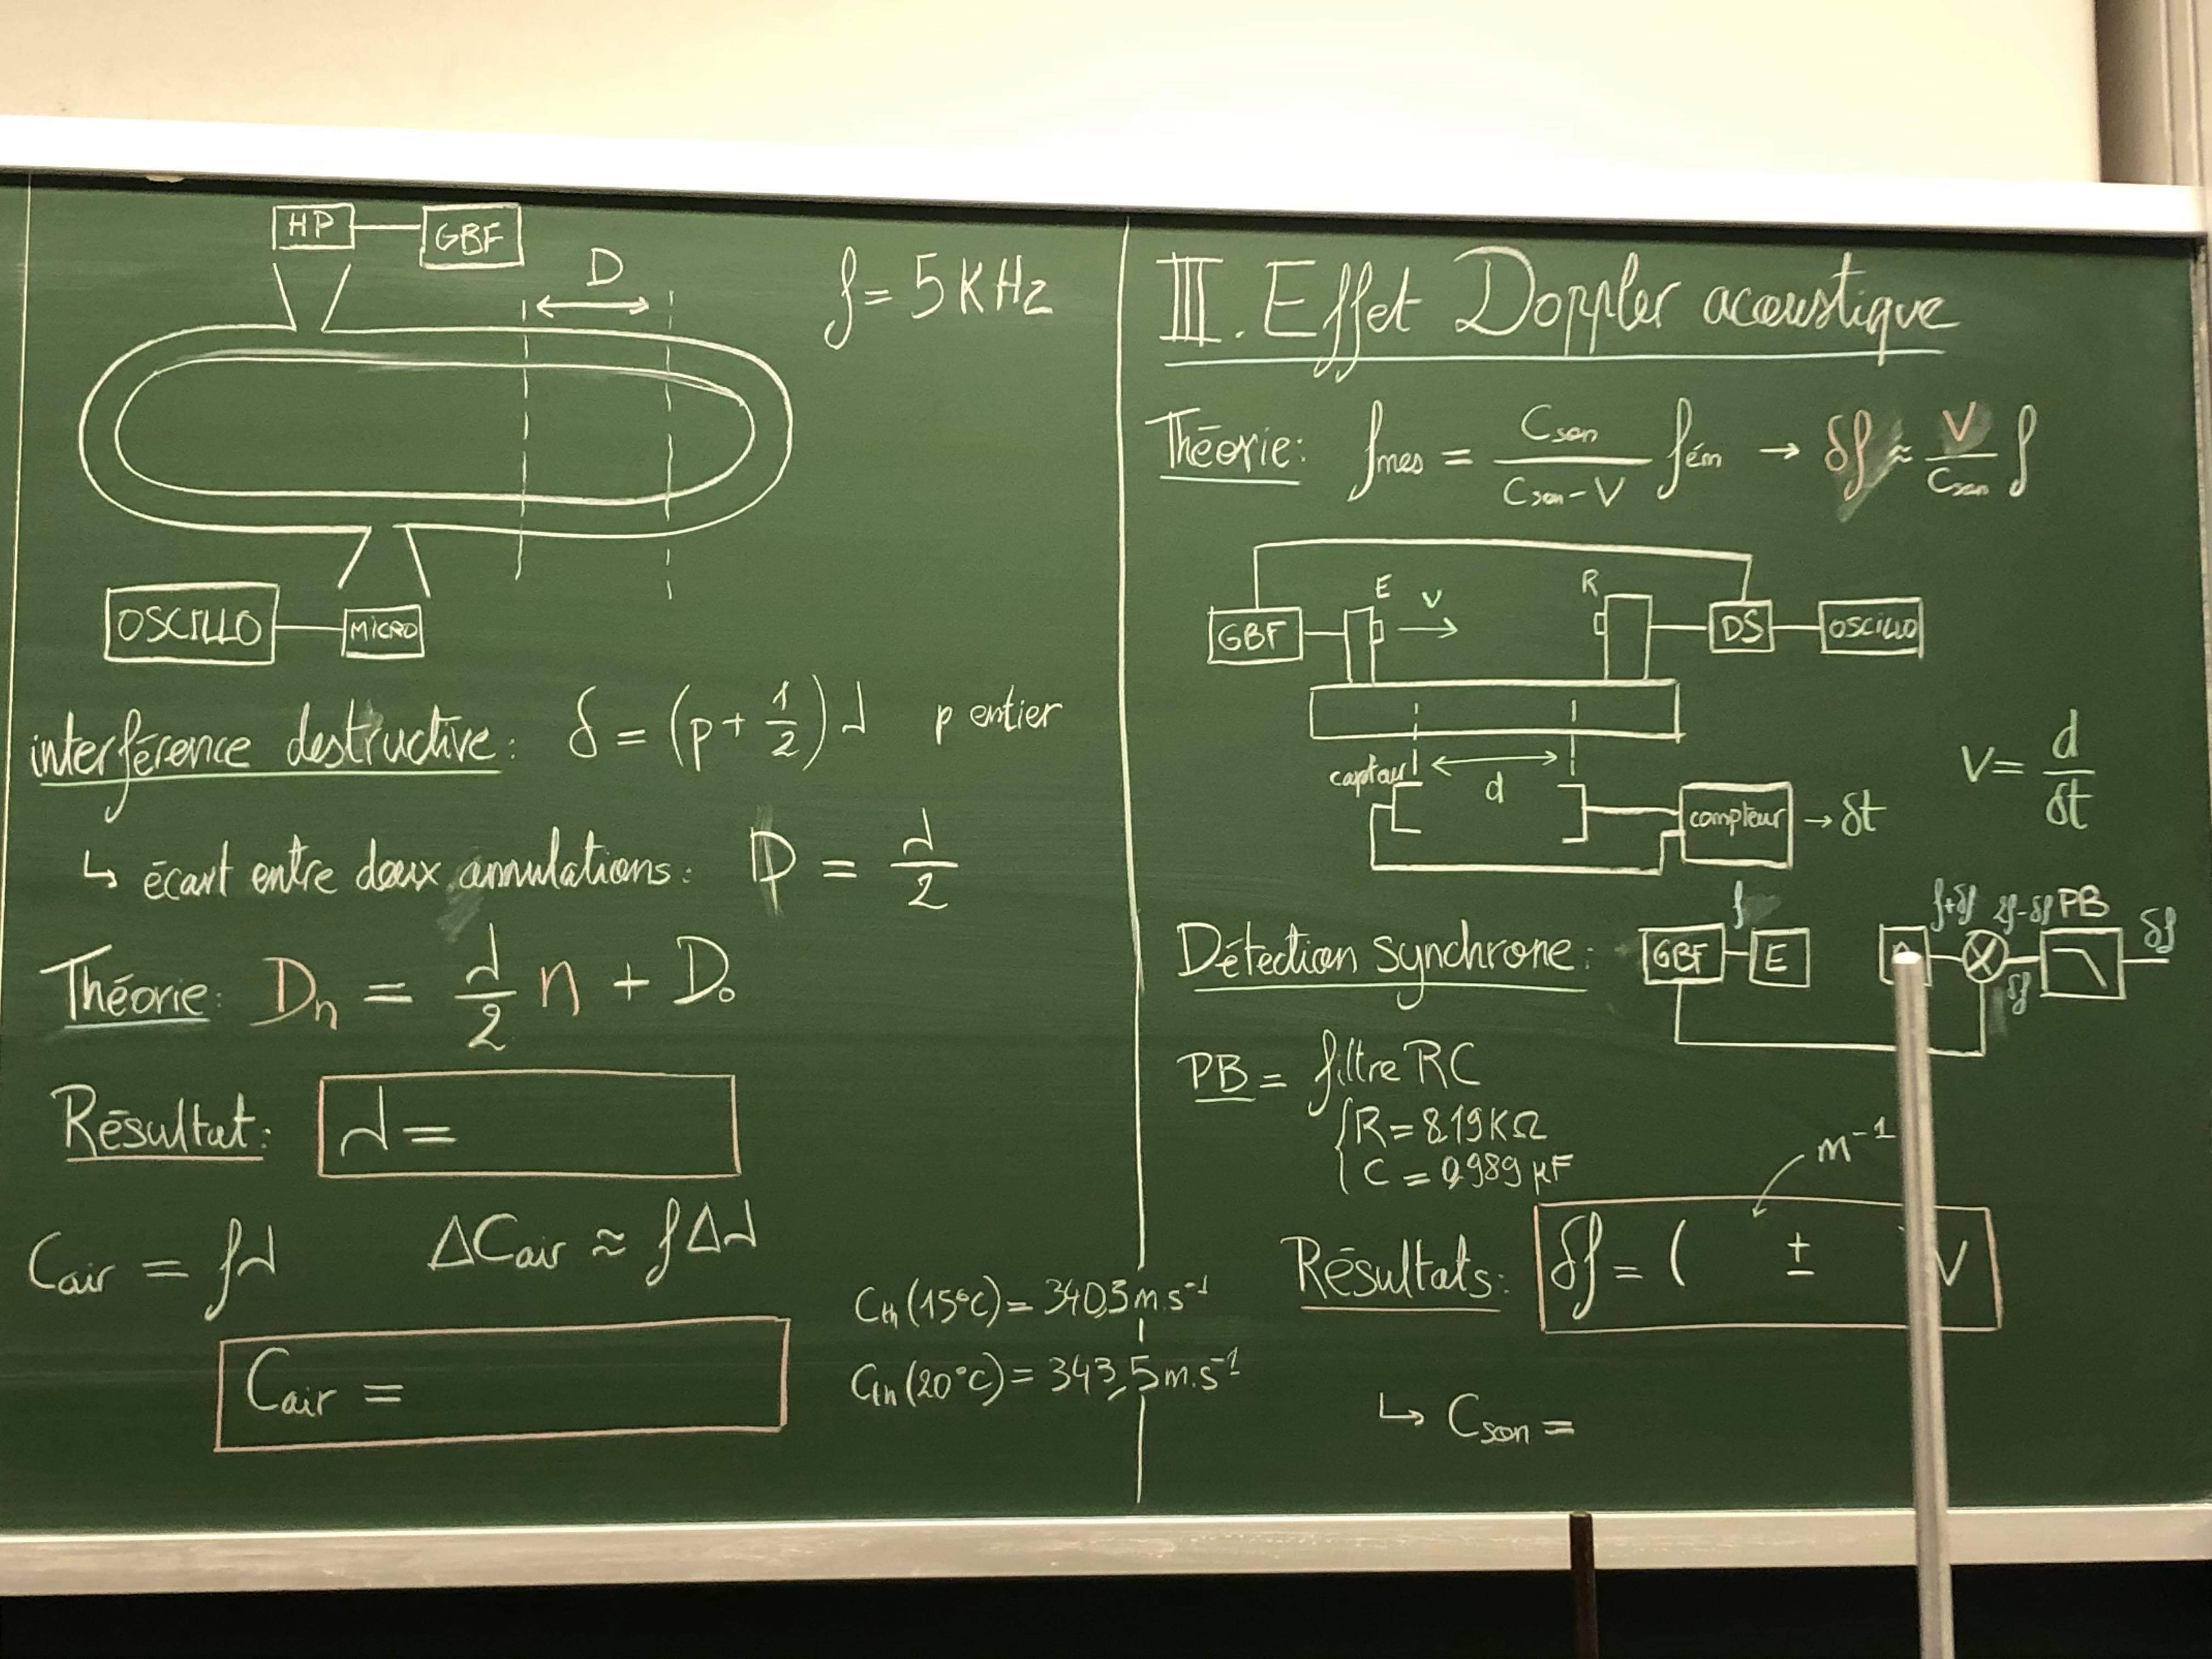 HP
GBF
D
f = 5 KHz
OSCILLO
MICRO
interférence destructive : δ = (p + 1/2) λ p entier
↳ écart entre deux annulations : D = λ/2
Théorie : Dn = λ/2 n + D₀
Résultat : λ =
Cair = fλ ΔCair ≈ fΔλ
Cair =
Cth (15°C) = 340,5 m.s⁻¹
Cth (20°C) = 343,5 m.s⁻¹
III. Effet Doppler acoustique
Théorie : fmes = Cson/(Cson - V) fém → δf ≈ V/Cson f
E
V
R
GBF
DS
OSCILLO
capteur
d
compteur → δt
V = d/δt
Détection synchrone :
f
f+δf
2f-δf
PB
δf
GBF
E
δf
PB = filtre RC
R = 8,19 KΩ
C = 0,989 µF
m⁻¹
Résultats : δf = ( ± ) V
↳ Cson =